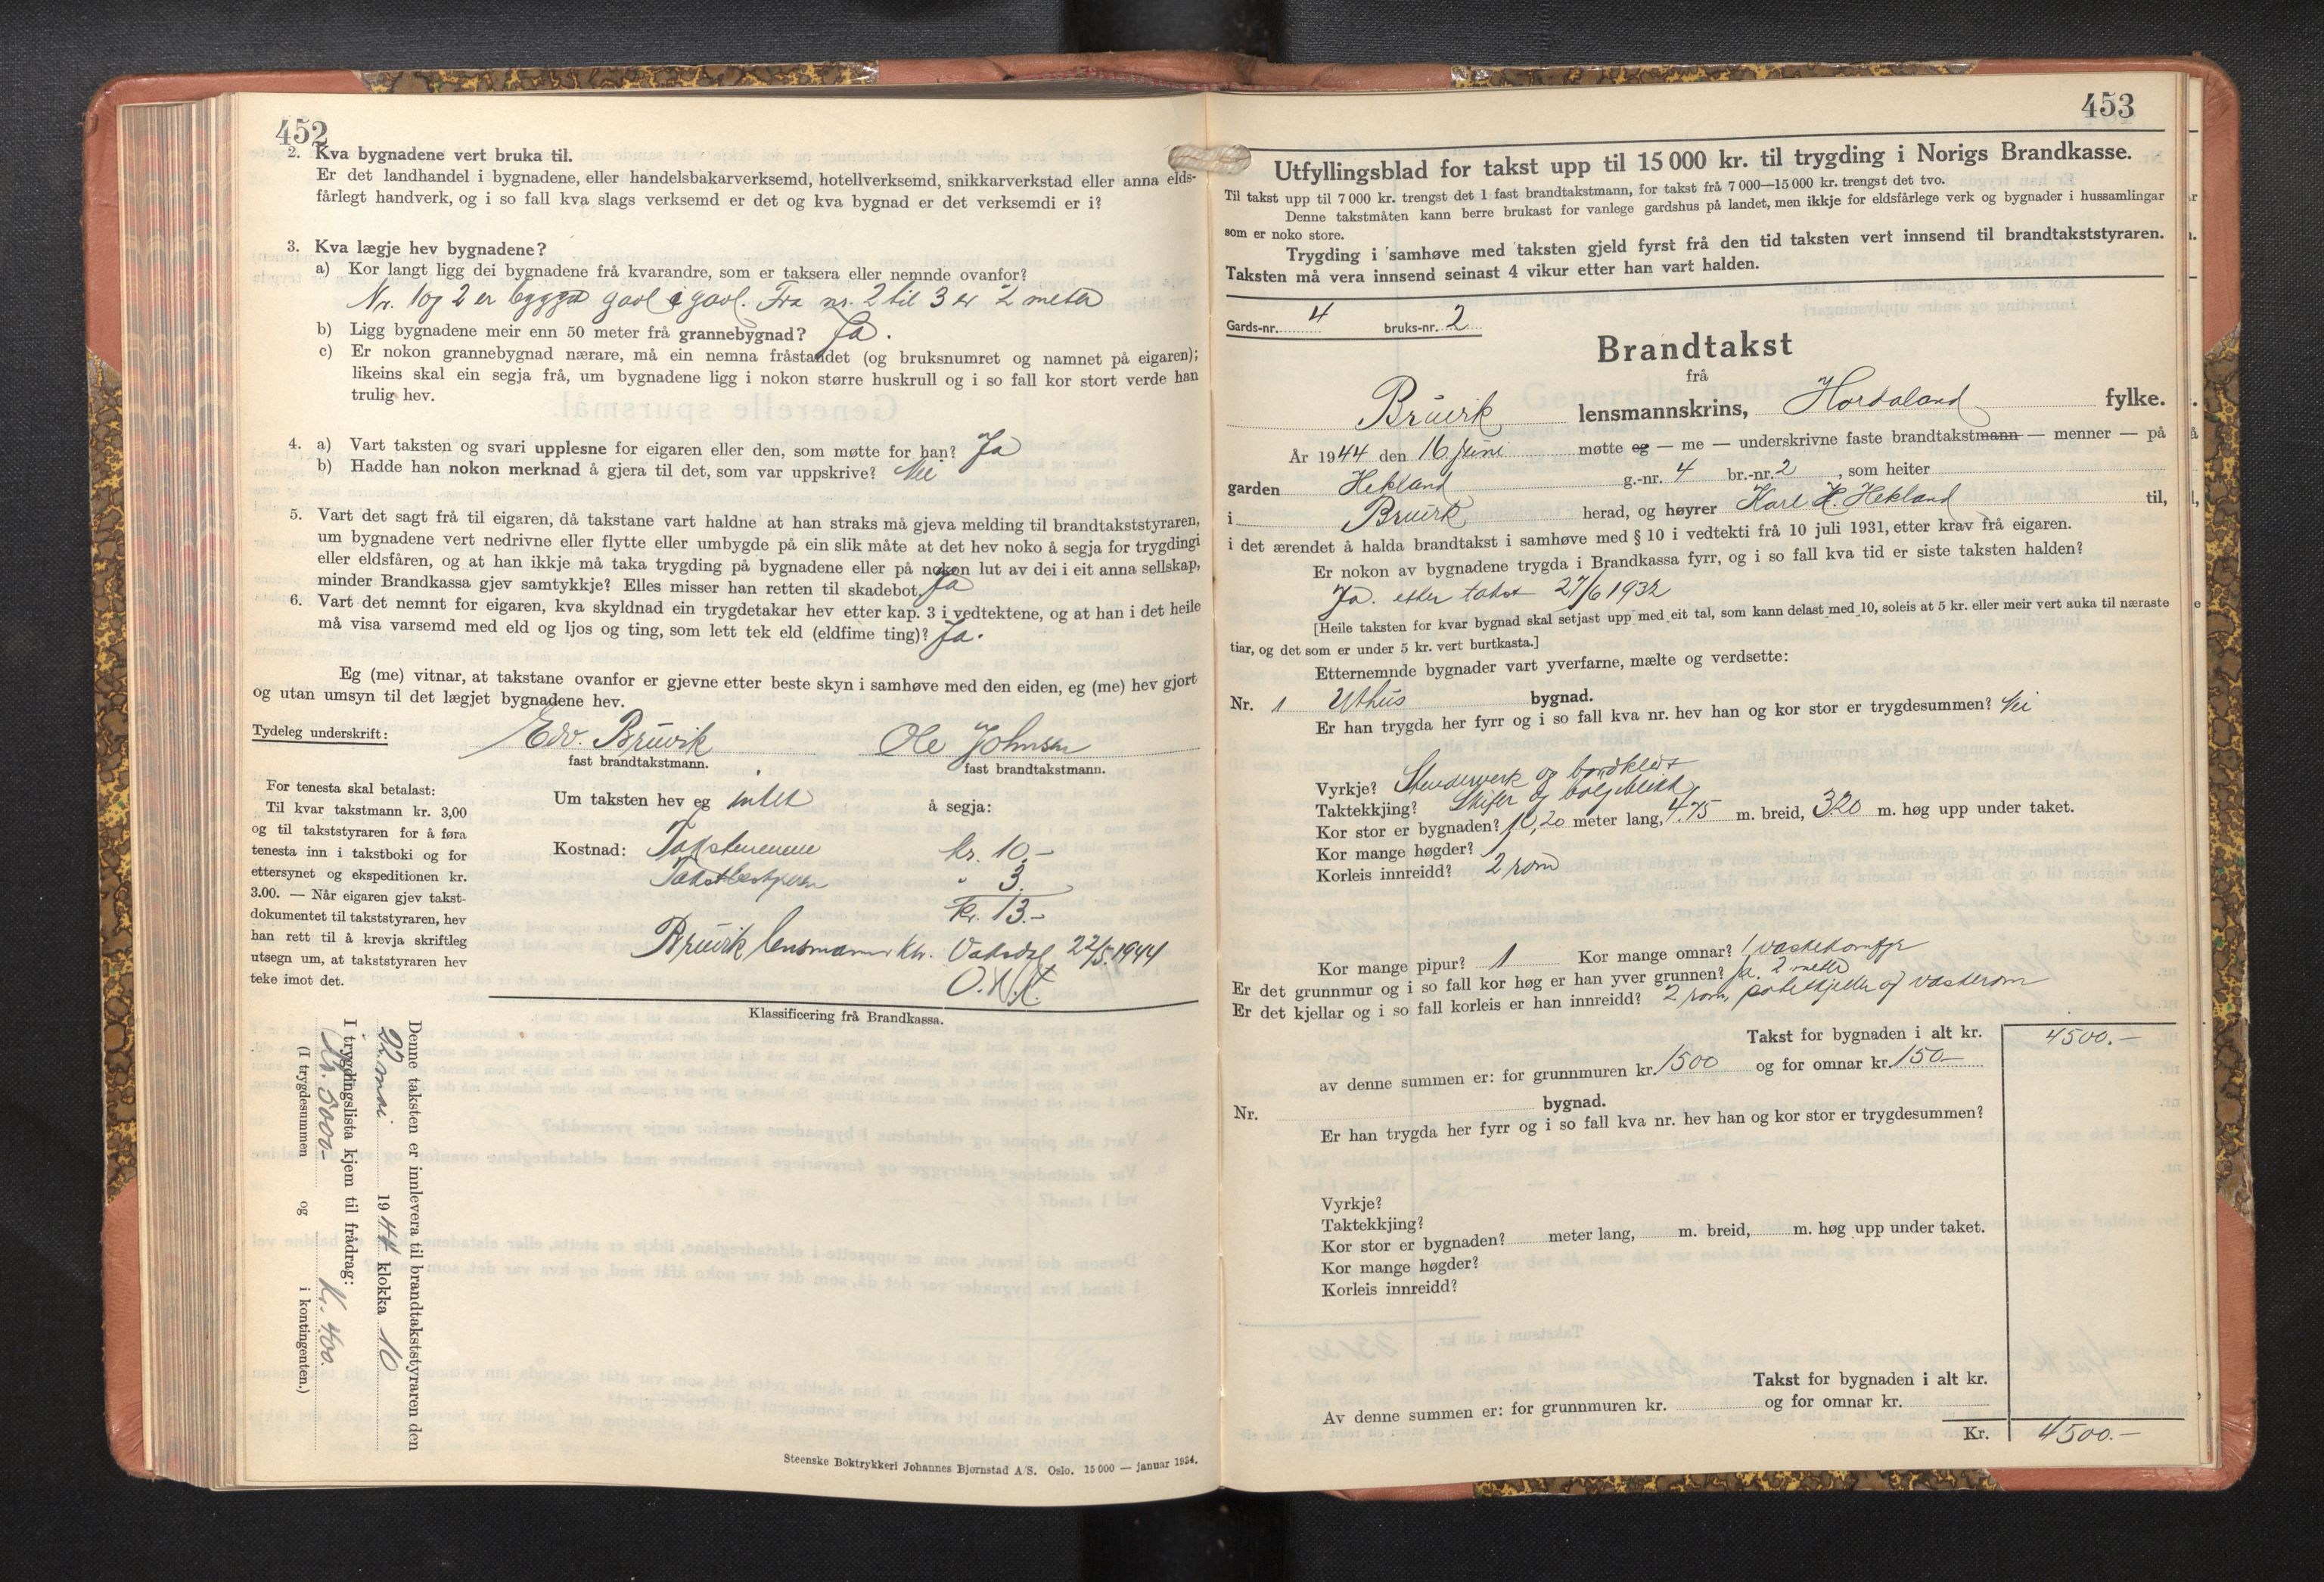 452
2. Kva bygnadene vert bruka til.
Er det landhandel i bygnadene, eller handelsbakarverksemd, hotellverksemd, snikkarverkstad eller anna elds-
fårlegt handverk, og i so fall kva slags verksemd er det og kva bygnad er det verksemdi er i?
3. Kva lægje hev bygnadene?
a) Kor langt ligg dei bygnadene frå kvarandre, som er taksera eller nemnde ovanfor?
Nr. 1 og 2 er bygget gavl i gavl. Fra nr. 2 til 3 er 2 meter
b) Ligg bygnadene meir enn 50 meter frå grannebygnad? Ja.
c) Er nokon grannebygnad nærare, må ein nemna fråstandet (og bruksnumret og namnet på eigaren);
likeins skal ein segja frå, um bygnadene ligg i nokon større huskrull og i so fall kor stort verde han
trulig hev.
4. a) Vart taksten og svari upplesne for eigaren eller den, som møtte for han? Ja
b) Hadde han nokon merknad å gjera til det, som var uppskrive? Nei
5. Vart det sagt frå til eigaren, då takstane vart haldne at han straks må gjeva melding til brandtakststyraren,
um bygnadene vert nedrivne eller flytte eller umbygde på ein slik måte at det hev noko å segja for trygdingi
eller eldsfåren, og at han ikkje må taka trygding på bygnadene eller på nokon lut av dei i eit anna sellskap,
minder Brandkassa gjev samtykkje? Elles misser han retten til skadebot. Ja
6. Vart det nemnt for eigaren, kva skyldnad ein trygdetakar hev etter kap. 3 i vedtektene, og at han i det heile
må visa varsemd med eld og ljos og ting, som lett tek eld (eldfime ting)? Ja.
Eg (me) vitnar, at takstane ovanfor er gjevne etter beste skyn i samhøve med den eiden, eg (me) hev gjort
og utan umsyn til det lægjet bygnadene hev.
Tydeleg underskrift: Edv. Bruvik Ole Johnsen
fast brandtakstmann. fast brandtakstmann.
For tenesta skal betalast:
Til kvar takstmann kr. 3,00
og til takststyraren for å føra
tenesta inn i takstboki og for
ettersynet og ekspeditionen kr.
3.00. — Når eigaren gjev takst-
dokumentet til takststyraren, hev
han rett til å krevja skriftleg
utsegn um, at takststyraren hev
teke imot det.
Um taksten hev eg intet å segja:
Kostnad: Takstmennene kr. 10.-
Takstbestyreren " 3.
Kr. 13.-
Bruvik lensmannskr. Vaksdal 22/5.1944
Klassificering frå Brandkassa.
Denne taksten er innlevera til brandtakststyraren den
22. mai 1944 klokka 10
I trygdingslista kjem til frådrag:
Kr. 5000.- Kr. 400.
(I trygdesummen og i kontingenten.)
Steenske Boktrykkeri Johannes Bjørnstad A/S. Oslo. 15 000 — januar 1934.
453
Utfyllingsblad for takst upp til 15 000 kr. til trygding i Norigs Brandkasse.
Til takst upp til 7 000 kr. trengst det 1 fast brandtakstmann, for takst frå 7 000—15 000 kr. trengst det tvo.
Denne takstmåten kann berre brukast for vanlege gardshus på landet, men ikkje for eldsfårlege verk og bygnader i hussamlingar
som er noko store.
Trygding i samhøve med taksten gjeld fyrst frå den tid taksten vert innsend til brandtakststyraren.
Taksten må vera innsend seinast 4 vikur etter han vart halden.
Gards-nr. 4 bruks-nr. 2
Brandtakst
frå
Bruvik lensmannskrins, Hordaland fylke.
År 1944 den 16. juni møtte eg — me — underskrivne faste brandtakstmann — menner — på
garden Hekland g.-nr. 4 br.-nr. 2, som heiter
i Bruvik herad, og høyrer Karl H. Hekland til,
i det ærendet å halda brandtakst i samhøve med § 10 i vedtekti frå 10 juli 1931, etter krav frå eigaren.
Er nokon av bygnadene trygda i Brandkassa fyrr, og i so fall kva tid er siste taksten halden?
Ja. etter takst 27/6 1932
[Heile taksten for kvar bygnad skal setjast upp med eit tal, som kann delast med 10, soleis at 5 kr. eller meir vert auka til næraste
tiar, og det som er under 5 kr. vert burtkasta.]
Etternemnde bygnader vart yverfarne, mælte og verdsette:
Nr. 1 Uthus bygnad.
Er han trygda her fyrr og i so fall kva nr. hev han og kor stor er trygdesummen? Nei
Vyrkje? Stenderverk og bordkledt
Taktekkjing? Skifer og bølgeblikk
Kor stor er bygnaden? 10,20 meter lang, 4,75 m. breid, 3,20 m. høg upp under taket.
Kor mange høgder? 1
Korleis innreidd? 2 rom
Kor mange pipur? 1 Kor mange omnar? 1 vaskekomfyr
Er det grunnmur og i so fall kor høg er han yver grunnen? Ja. 2 meter
Er det kjellar og i so fall korleis er han innreidd? 2 rom, potetkjeller og vaskerom
Takst for bygnaden i alt kr. 4500.-
av denne summen er: for grunnmuren kr. 1500 og for omnar kr. 150.-
Nr. bygnad.
Er han trygda her fyrr og i so fall kva nr. hev han og kor stor er trygdesummen?
Vyrkje?
Taktekkjing?
Kor stor er bygnaden? meter lang, m. breid, m. høg upp under taket.
Kor mange høgder?
Korleis innreidd?
Takst for bygnaden i alt kr.
Av denne summen er: for grunnmuren kr. og for omnar kr.
Kr. 4500.-